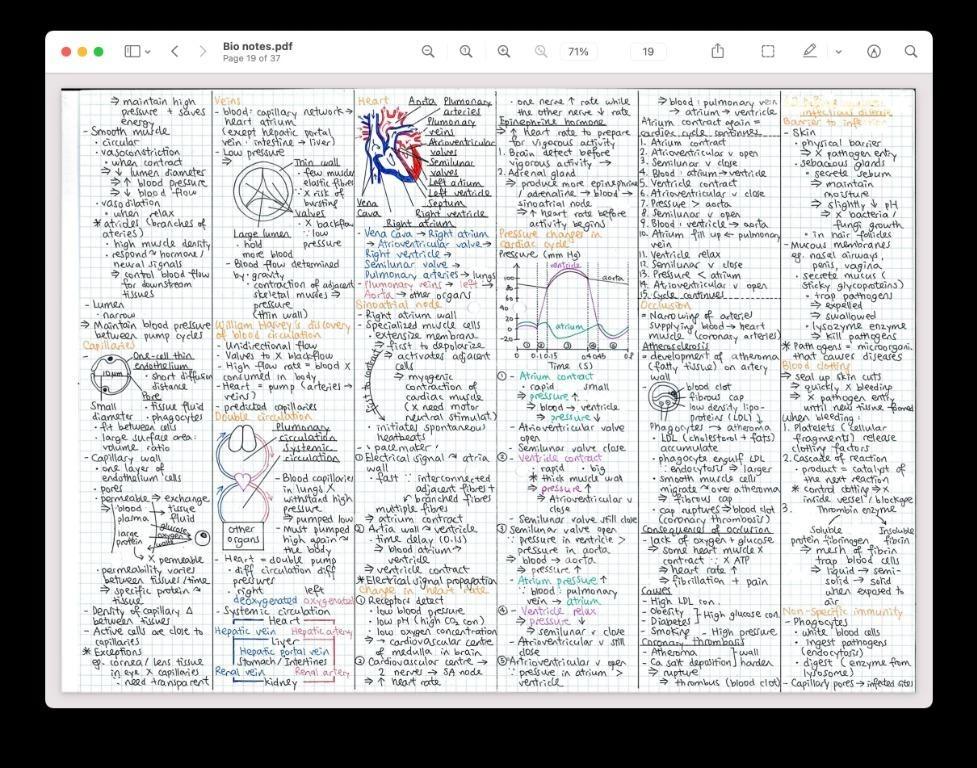 Bio notes.pdf
Page 19 of 37
71%
19
⇒ maintain high
pressure + saves
energy
- Smooth muscle
• circular
• vasoconstriction
• when contract
⇒ ↓ lumen diameter
⇒ ↑ blood pressure
⇒ ↓ blood flow
• vasodilation
• when relax
* atricles (branches of
arteries)
• high muscle density
• respond ~ hormone/
neural signals
⇒ control blood flow
for downstream
tissues
- Lumen
• narrow
⇒ Maintain blood pressure
between pump cycles
Capillaries
- One-cell thin
endothelium
• short diffusion
distance
10μm
Pore
Small
diameter
• tissue fluid
• phagocytes
• fit between cells
• large surface area:
volume ratio
- Capillary wall
• one layer of
endothelium cells
• pores
• permeable ⇒ exchange
blood
plasma
→ tissue
fluid
large
protein
glucose
oxygen
X permeable
• permeability varies
between tissues/time
⇒ specific protein ~
tissue
- Density of capillary Δ
between tissues
- Active cells are close to
capillaries
* Exceptions
eg. cornea/lens tissue
in eye X capillaries
• need transparent
Veins
- blood: capillary network →
heart atrium
(except hepatic portal
vein: intestine → liver)
- Low pressure
⇒ Thin wall
• few muscle
elastic fibres
∵ X risk of
bursting
Valves
• X backflow
∵ low
pressure
Large lumen
• hold
more blood
- Blood flow determined
by: gravity
• contraction of adjacent
skeletal muscles ⇒
pressure
(thin wall)
William Harvey's discovery
of blood circulation
- Unidirectional flow
- Valves to X backflow
- High flow rate = blood X
consumed in body
- Heart = pump (arteries →
veins)
- predicted capillaries
Double circulation
Pulmonary
circulation
Systemic
circulation
- Blood capillaries
in lungs X
withstand high
pressure
⇒ pumped low
- Must pumped
high again ~
the body
other
organs
- Heart = double pump
• diff circulation diff
pressures
• right left
deoxygenated oxygenated
- Systemic circulation
Heart
Liver
Hepatic vein Hepatic artery
Hepatic portal vein
Stomach/Intertines
Renal vein Renal artery
Kidney
Heart
Aorta
Pulmonary
arteries
Pulmonary
veins
Atrioventricular
valves
Semilunar
valves
Left atrium
Left ventricle
Septum
Right ventricle
Vena
Cava
Right atrium
Vena Cava → Right atrium
→ Atrioventricular valve →
Right ventricle →
Semilunar valve →
Pulmonary arteries → lungs
- Pulmonary veins → left →
Aorta → other organs
Sinoatrial node
- Right atrium wall
- Specialized muscle cells
• extensive membrane
⇒ first to depolarize
⇒ activates adjacent
cells
⇒ myogenic
contraction of
cardiac muscle
(X need motor
neutral stimulat.)
• initiates spontaneous
heatbeats
• pacemaker
① Electrical signal ~ atria
wall
• fast ∵ interconnected
adjacent fibres +
branched fibres
multiple fibres
⇒ atrium contract
② Artia wall ~ ventricle
• time delay (0.1s)
⇒ blood atrium →
ventricle
⇒ ventricle contract
* Electrical signal propagation
Change in heart rate
① Receptors detect
• low blood pressure
• low pH (high CO₂ con)
• low oxygen concentration
⇒ cardiovascular centre
of medulla in brain
② Cardiovascular centre →
2 nerves → SA node
⇒ ↑ heart rate
• one nerve ↑ rate while
the other nerve ↓ rate
Epinephrine hormone
⇒ ↑ Heart rate to prepare
for vigorous activity
1. Brain detect before
vigorous activity
2. Adrenal gland
⇒ produce more epinephrine
/ adrenaline → blood →
sinoatrial node
⇒ ↑ heart rate before
activity begins
Pressure changes in
cardiac cycle
Pressure (mm Hg)
ventricle
aorta
120
100
80
60
40
20
0
atrium
0 0.1 0.15 0.4 0.45 0.8
Time (s)
① - Atrium contract
• rapid small
pressure ↑
⇒ blood → ventricle
pressure ↓
- Atrioventricular valve
open
- Semilunar valve close
② - Ventricle contract
• rapid • big
* thick muscle wall
⇒ pressure ↑
⇒ Atrioventricular v
close
- Semilunar valve still close
③ Semilunar valve open
∵ pressure in ventricle >
pressure in aorta
⇒ blood → aorta
⇒ pressure ↑
- Atrium pressure ↑
∵ blood: pulmonary
vein → atrium
④ - Ventricle relax
⇒ pressure ↓
⇒ semilunar v close
- Atrioventricular v still
close
⑤ Atrioventricular v open
∵ pressure in atrium >
ventricle
⇒ blood: pulmonary vein
→ atrium → ventricle
Atrium contract again =
cardiac cycle continues
1. Atrium contract
2. Atrioventricular v open
3. Semilunar v close
4. Blood: atrium → ventricle
5. Ventricle contract
6. Atrioventricular v close
7. Pressure > aorta
8. Semilunar v open
9. Blood: ventricle → aorta
10. Atrium fill up ← pulmonary
vein
11. Ventricle relax
12. Semilunar v close
13. Pressure < atrium
14. Atrioventricular v open
15. Cycle continues
Occlusion
= Narrowing of arteries
supplying blood → heart
muscle (coronary arteries)
Atherosclerosis
= development of atheroma
(fatty tissue) on artery
wall
blood clot
fibrous cap
low density lipo-
proteins (LDL) ↓
Phagocytes → atheroma
• LDL (cholesterol + fats)
accumulate
• phagocyte engulf LDL
∵ endocytosis ⇒ larger
• smooth muscle cell
migrate ~ over atheroma
⇒ fibrous cap
• cap ruptures ⇒ blood clot
(coronary thrombosis)
Consequences of occlusion
- lack of oxygen + glucose
⇒ some heart muscle X
contract ∵ X ATP
⇒ heart rate ↑
⇒ fibrillation + pain
Causes
- High LDL con.
- Obesity
- Diabetes
High glucose con.
- Smoking - High pressure
Coronary thrombosis
- Atheroma
- Ca salt deposition
wall
harden
⇒ rupture
⇒ thrombus (blood clot)
infectious disease
Barrier to infection
- Skin
• physical barrier
⇒ X pathogen entry
• sebaceous glands
• secrete sebum
⇒ maintain
moisture
⇒ slightly ↓ pH
⇒ X bacteria/
fungi growth
• in hair follicles
- Mucous membranes
eg. nasal airways,
penis, vagina
• secrete mucus (
sticky glycoproteins)
• trap pathogens
⇒ expelled
⇒ swallowed
• lysozyme enzyme
⇒ kill pathogens
* Pathogens = microorganism
that causes diseases
Blood clotting
⇒ seal up skin cuts
⇒ quickly X bleeding
⇒ X pathogen entry
until new tissue formed
When bleeding:
1. Platelets (cellular
fragments) release
clotting factors
2. Cascade of reaction
• product = catalyst of
the next reaction
* control clotting ⇒ X
inside vessel/blockage
3. Thrombin enzyme
Soluble Insoluble
protein fibrinogen fibrin
⇒ mesh of fibrin
trap blood cells
⇒ liquid → semi-
solid → solid
when exposed to
air
Non-Specific immunity
- Phagocytes
• white blood cells
• ingest pathogens
(endocytosis)
• digest (enzyme from
lysosome)
- Capillary pores → infected sites